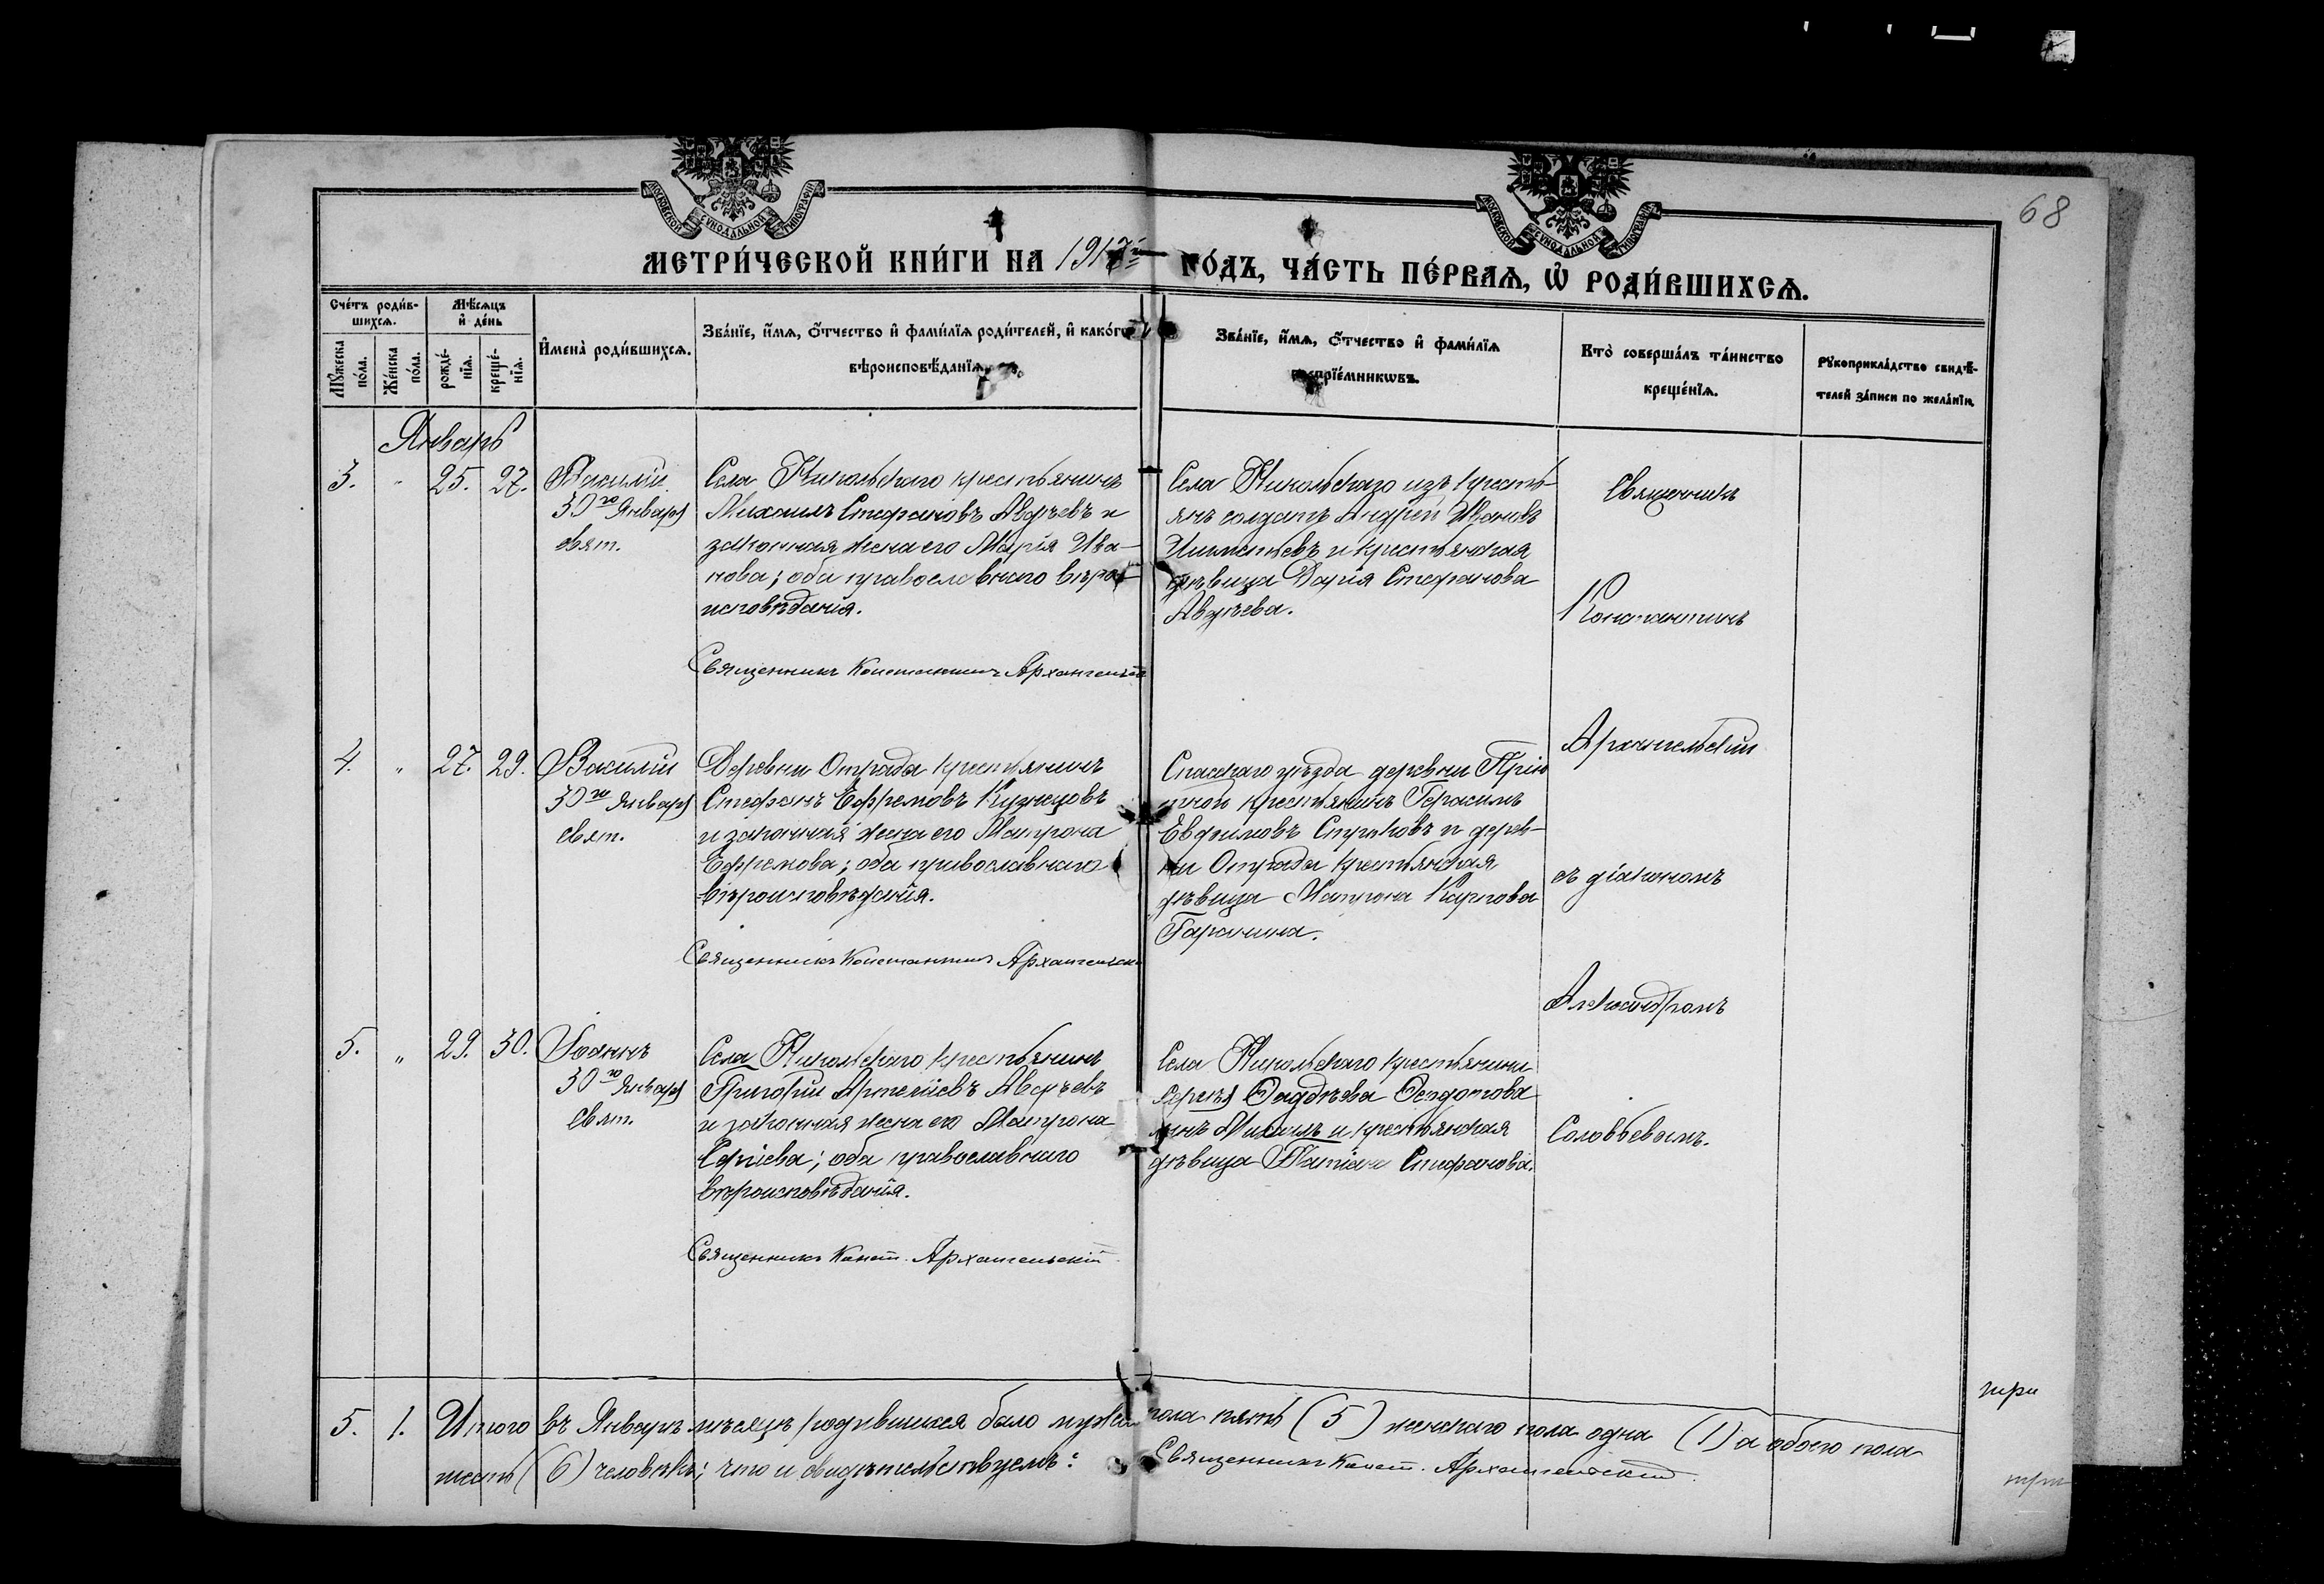 68
МОСКОВСКОЙ СѴНОДАЛЬНОЙ ТИПОГРАФІИ
МОСКОВСКОЙ СѴНОДАЛЬНОЙ ТИПОГРАФІИ
МЕТРИ́ЧЕСКОЙ КНИ́ГИ НА 1917й ГО́ДЪ, ЧА́СТЬ ПЕ́РВАѦ, Ѡ҆ РОДИ́ВШИХСѦ.
Сче́тъ роди́в-
шихсѧ.
Мѣ́сѧцъ
и҆ де́нь
Мꙋ́жеска
по́ла.
Же́нска
по́ла.
рожде́-
нїѧ.
креще́-
нїѧ.
И҆мена̀ роди́вшихсѧ.
Зва́нїе, и҆́мѧ, ѻ҆́тчество и҆ фами́лїѧ роди́телей, и҆ како́гѡ
вѣроисповѣ́данїѧ.
Зва́нїе, и҆́мѧ, ѻ҆́тчество и҆ фами́лїѧ
воспрїе́мникѡвъ.
Кто̀ соверша́лъ та́инство
креще́нїѧ.
Рꙋкоприкла́дство свидѣ́-
телей за́писи по жела́нїю.
Январь
3. „ 25. 27.
Василій
30го Января
свят.
Села Никольскаго крестьянинъ
Михаилъ Стефановъ Авдѣевъ и
законная жена его Марія Ива-
нова; оба православнаго вѣро-
исповѣданія.
Священникъ Константинъ Архангельскій
Села Никольскаго изъ кресть-
янъ солдатъ Андрей Ивановъ
и крестьянская
дѣвица Дарія Стефанова
Авдѣева.
Священникъ
Константинъ
Архангельскій
съ діакономъ
Александромъ
Соловьевымъ.
4. „ 27. 29.
Василій
30го Января
свят.
Деревни Отрада крестьянинъ
Стефанъ Ефремовъ Кузнецовъ
и законная жена его Матрона
Ефремова; оба православнаго
вѣроисповѣданія.
Священникъ Константинъ Архангельскій
Спасскаго уѣзда деревни Прію-
тной крестьянинъ Герасимъ
Евфимовъ и дерев-
ни Отрада крестьянская
дѣвица Матрона Карпова
Гаранина.
5. „ 29. 30.
Іоаннъ
30го Января
свят.
Села Никольскаго крестьянинъ
Григорій Артеміевъ Авдѣевъ
и законная жена его Матрона
Сергіева; оба православнаго
вѣроисповѣданія.
Священникъ Конст. Архангельскій
Села Никольскаго крестьянина
Сергѣя Ѳаддѣева Ѳедотова
сынъ Михаилъ и крестьянская
дѣвица Татіана Стефанова.
5. 1. Итого въ Январѣ мѣсяцѣ родившихся было мужск. пола пять (5) женскаго пола одна (1) а обоего пола
шесть (6) человѣкъ; что и свидѣтельствуемъ: Священникъ Конст. Архангельскій.
три
три